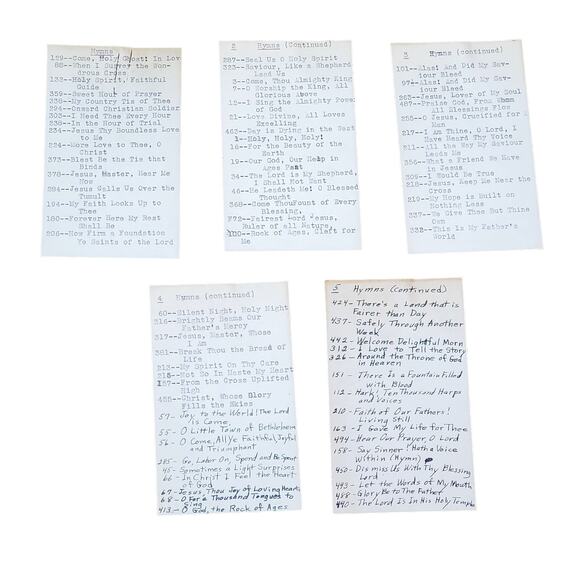 Hymns
129--Come, Holy Ghost: In Lov
88--When I Survey the Won-
drous Cross
133--Holy Spirit, Faithful
Guide
359--Sweet Hour of Prayer
338--My Country Tis of Thee
294--Onward Christian Soldier
303--I Need Thee Every Hour
238--In the Hour of Trial
234--Jesus Thy Boundless Love
to Me
224--More Love to Thee, O
Christ
373--Blest Be the Tie that
Binds
378--Jesus, Master, Hear Me
Now
284--Jesus Calls Us Over the
Tumult
194--My Faith Looks Up to
Thee
180--Forever Here My Rest
Shall Be
206--How Firm a Foundation
Ye Saints of the Lord
2 Hymns (Continued)
287--Seal Us O Holy Spirit
323--Saviour, Like a Shepherd
Lead Us
3--Come, Thou Almighty King
7--O Worship the King, All
Glorious Above
12--I Sing the Almighty Power
of God
21--Love Divine, All Loves
Excelling
463--Day is Dying in the West
1--Holy, Holy, Holy
16--For the Beauty of the
Earth
19--Our God, Our Help in
Ages Past
34--The Lord is My Shepherd,
I Shall Not Want
46--He Leadeth Me! O Blessed
Thought
368--Come Thou Fount of Every
Blessing,
F72--Fairest Lord Jesus,
Ruler of all Nature,
100--Rock of Ages, Cleft for
Me
3 Hymns (Continued)
101--Alas! And Did My Sav-
iour Bleed
97--Alas! And Did My Sav-
iour Bleed
263--Jesus, Lover of My Soul
487--Praise God, From Whom
All Blessings Flow
255--O Jesus, Crucified for
217--I Am Thine, O Lord, I
Have Heard Thy Voice
211--All the Way My Saviour
Leads Me
356--What a Friend We Have
in Jesus
309--I Would Be True
218--Jesus, Keep Me Near the
Cross
219--My Hope is Built on
Nothing Less
337--We Give Thee But Thine
Own
332--This Is My Father's
World
4 Hymns (continued)
60--Silent Night, Holy Night
316--Brightly Beams Our
Father's Mercy
317--Jesus, Master, Whose
I Am
381--Break Thou the Bread of
Life
213--My Spirit On Thy Care
215--Not So In Haste My Heart
157--From the Cross Uplifted
High
455--Christ, Whose Glory
Fills the Skies
57- Joy to the World! The Lord
is Come
55- O Little Town of Bethlehem
56- O Come, All Ye Faithful, Joyful
and Triumphant
285- Go, Labor On, Spend and Be Spent
45- Sometimes a Light Surprises
66- In Christ I Feel the Heart
of God
67- Jesus, Thou Joy of Loving Hearts
68- O For a Thousand Tongues to
Sing
413- O God, the Rock of Ages
5 Hymns (continued)
424- There's a Land that is
Fairer than Day
437- Safely Through Another
Week
442- Welcome Delightful Morn
312- I Love to Tell the Story
326- Around the Throne of God
in Heaven
151- There Is a Fountain Filled
with Blood
112- Hark! Ten Thousand Harps
and Voices
210- Faith of Our Fathers!
Living Still
163- I Gave My Life for Thee
494- Hear Our Prayer, O Lord
158- Say Sinner! Hath a Voice
Within (Hymn)
450- Dismiss Us With Thy Blessing
Lord
493- Let the Words of My Mouth
488- Glory Be to The Father
490- The Lord Is In His Holy Temple